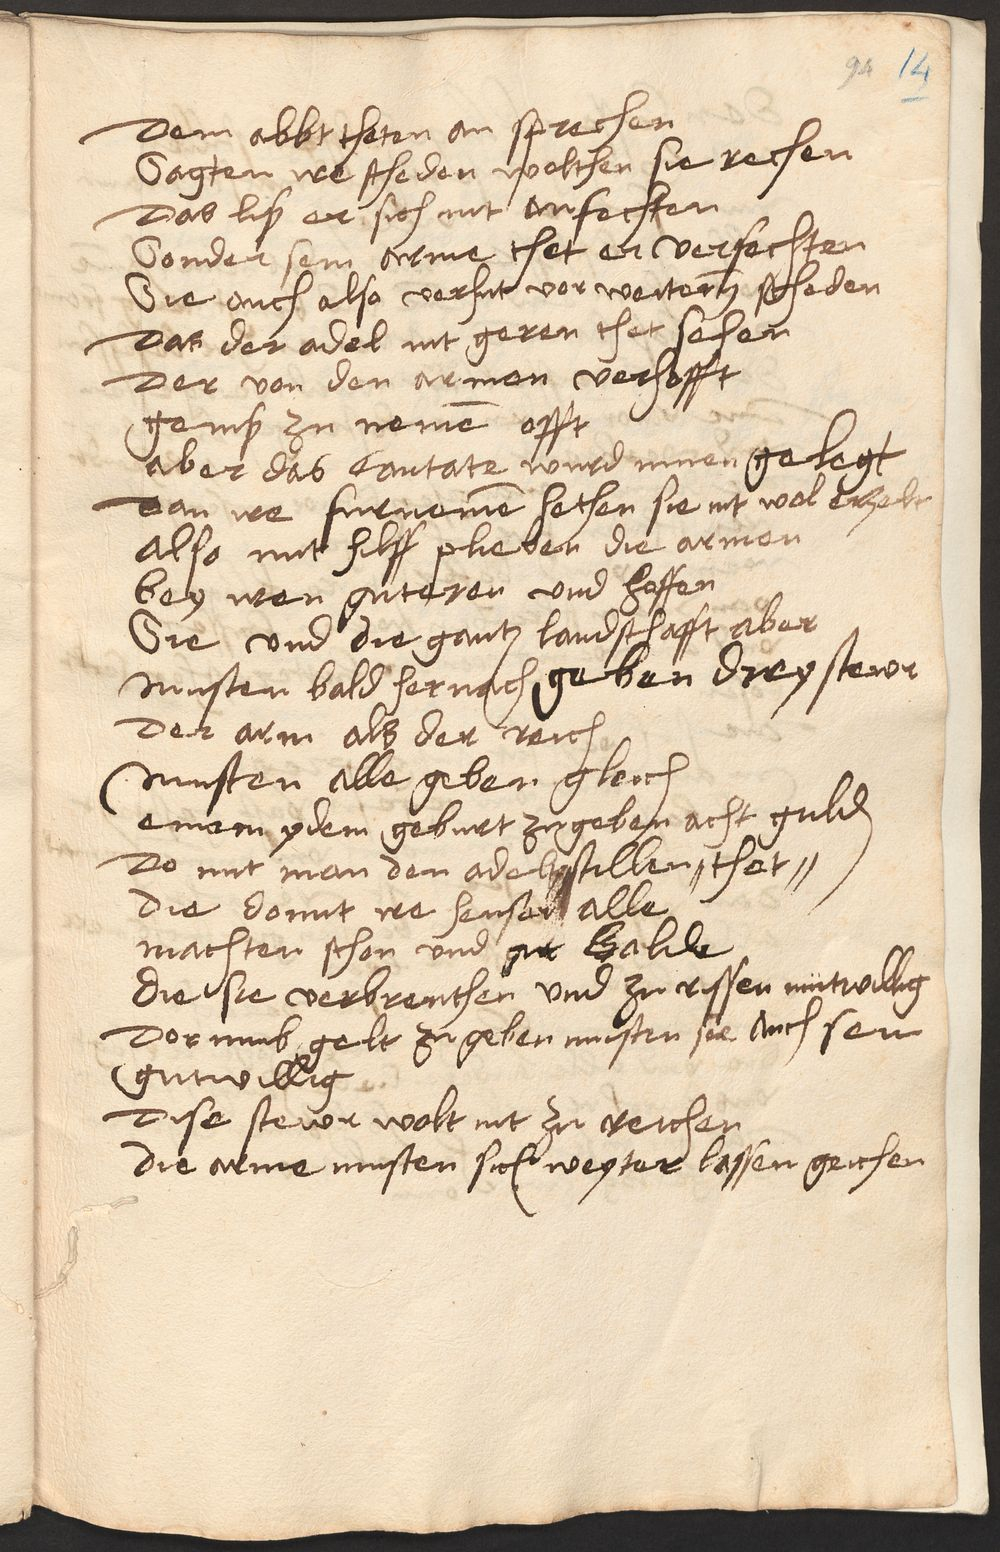 94 14
Dem abbt theten an sprechen
Sagten ire scheden wolthen sie rechen
Das liss er sich nit anfechten
Sonder sein arme thet er verfechten
Sie auch also verhut vor weitern scheden
Das der adel nit geren thet sehen
Der von den armen verhofft
geniss zu nemē offt
aber das Cantate wurd innen gelegt
Dan ire furnemē hethen sie nit wol
also mit hilff pliben die armen
bey iren guteren und hoffen
Sie und die gantz landschafft aber
musten bald hernach geben drey stewr
Der arm als der reich
musten alle geben gleich
einem ydem geburt zugeben acht guld
Do mit man den adel stillen thet
die domit ire heuser alle
machten schon und gar balde
die sie verbrenthen und zu rissen mutwillig
Dorumb gelt zu geben musten sie auch sein
gutwillig
Dise stewr wolt nit zu reichen
die arme musten sich weyter lassen geichen